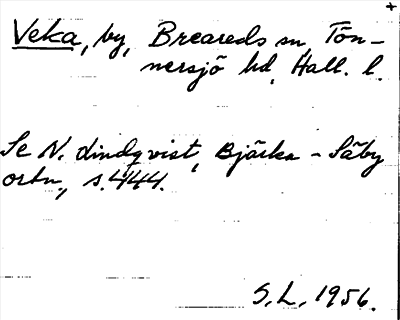 +
Veka, by, Breareds sn, Tön-
nersjö hd, Hall. l.
Se N. Lindqvist, Bjärka - Säby
ortn., s. 444.
S. L. 1956.